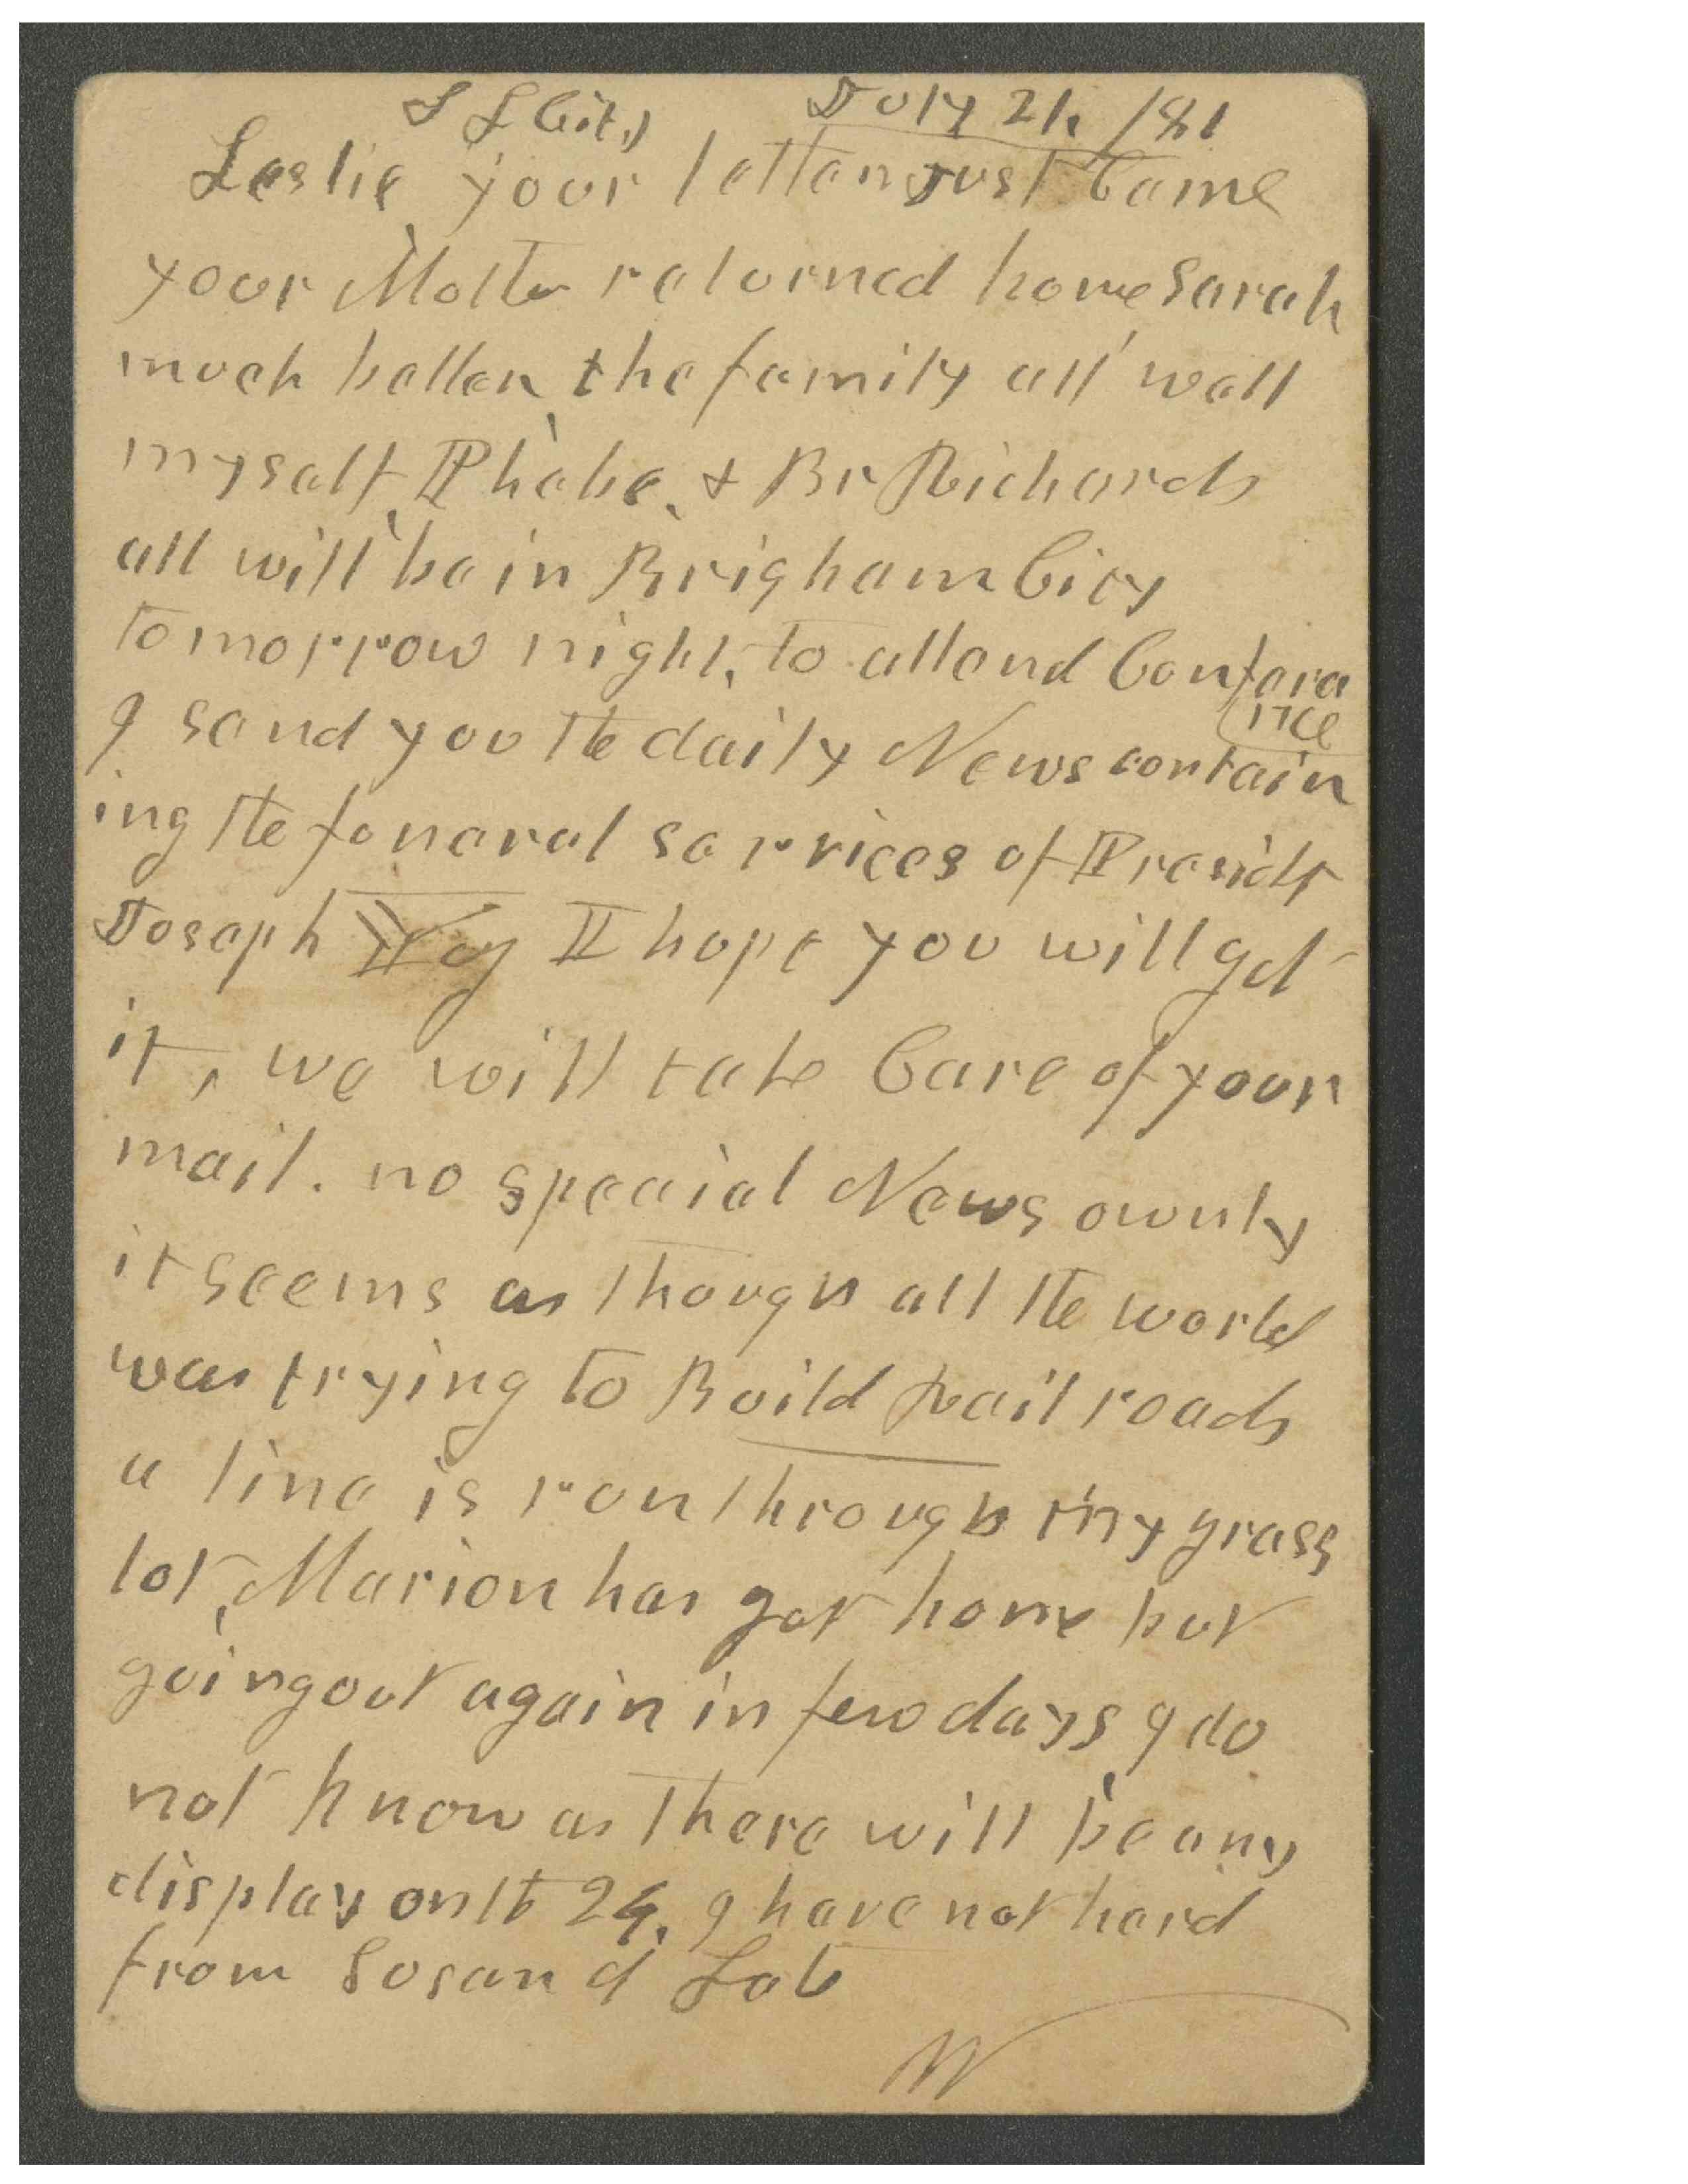 S L City July 21, /81
Leslie your letter Just Came
your Mother returned home Sarah
much better, the family all well
myself Phebe, & Br Richards
all will be in Brigham City
tomorrow night, to attend Confere
nce
I send you the daily News contain
ing the foneral services of Presidt
Joseph Young I hope you will get
it, we will take Care of your
mail. no special News ownly
it seems as though all the world
was trying to Build Rail roads
a line is run through my grass
lot, Marion has got home but
going out again in few days I do
not know as there will be any
display on the 24, I have not herd
from Susan of Late
W